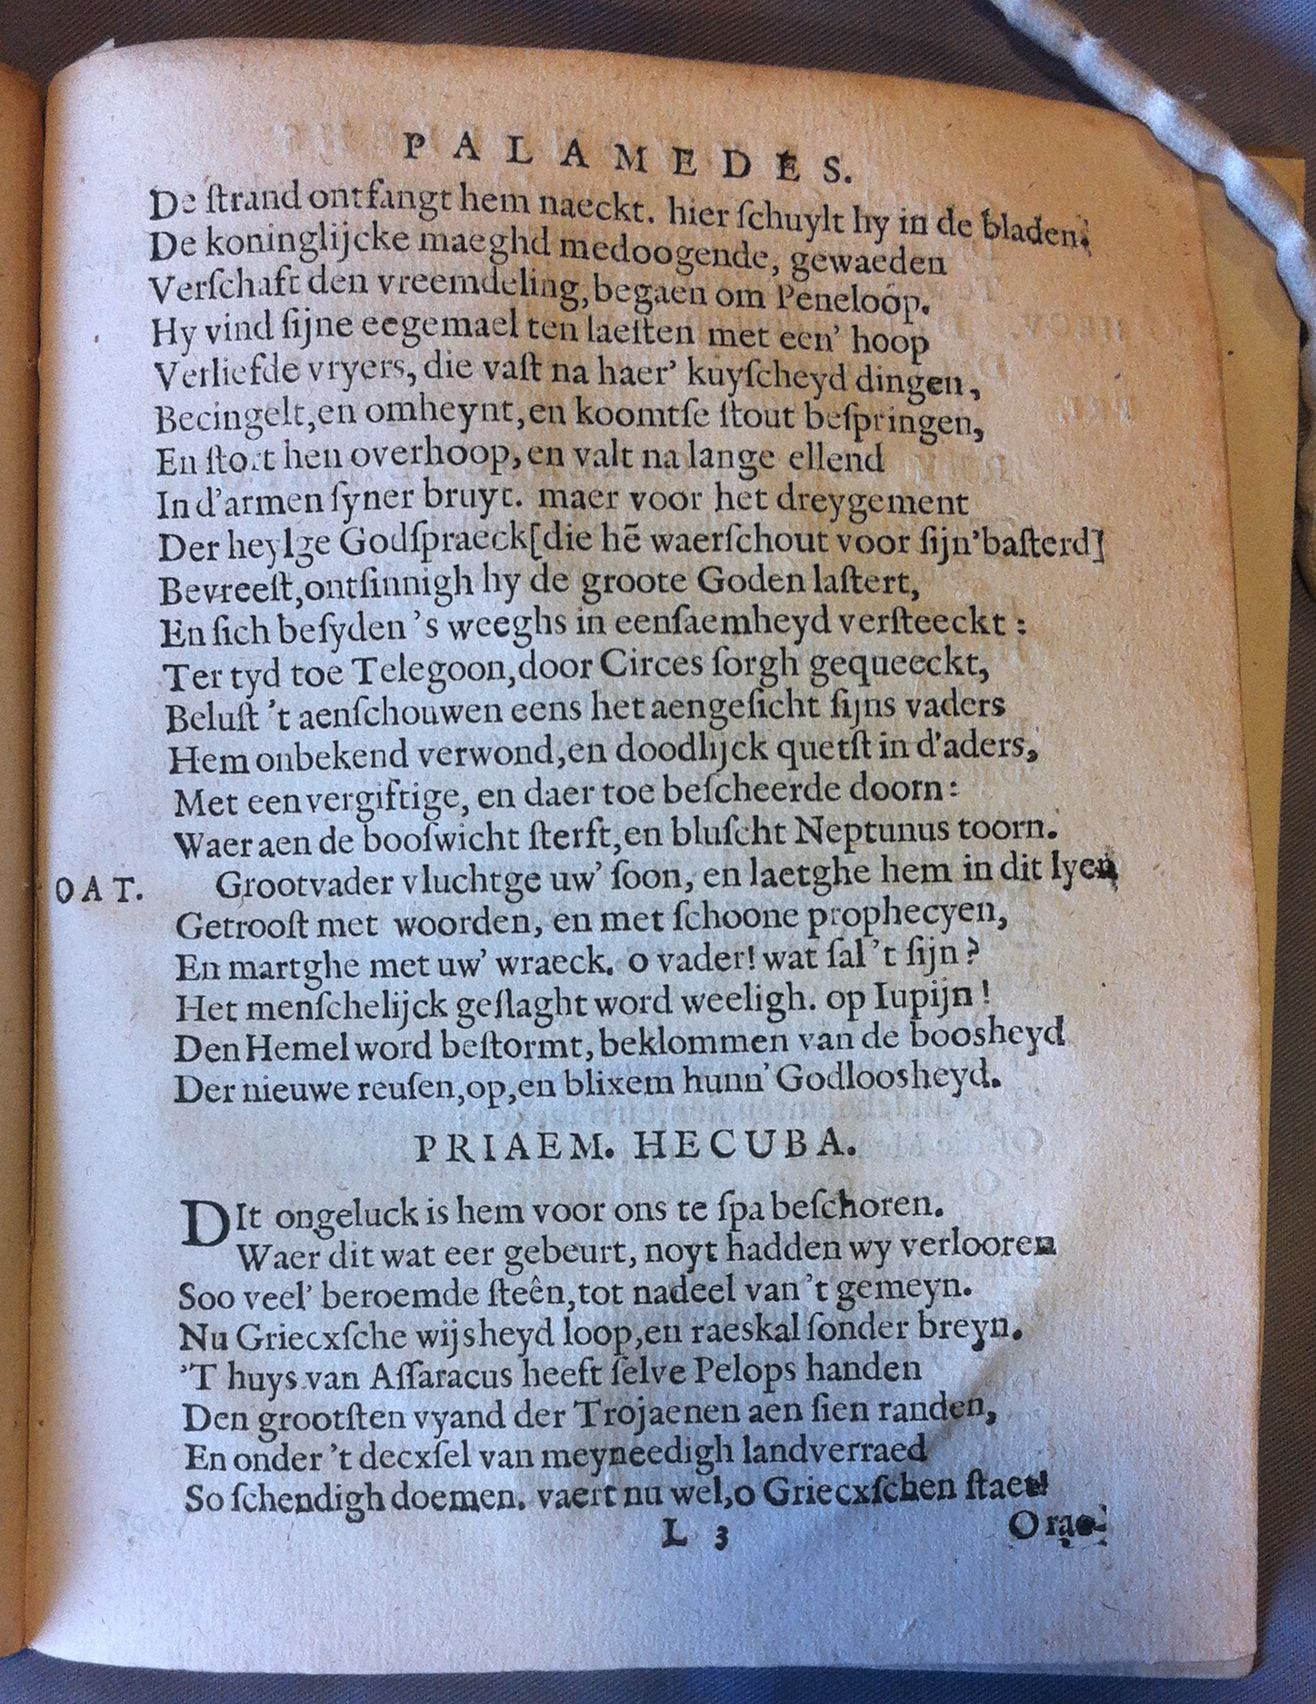 PALAMEDES.
De ſtrand ontfangt hem naeckt. hier ſchuylt hy in de bladen.
De koninglijcke maeghd medoogende, gewaeden
Verſchaft den vreemdeling, begaen om Peneloop.
Hy vind ſijne eegemael ten laeſten met een' hoop
Verliefde vryers, die vaſt na haer' kuyſcheyd dingen,
Becingelt, en omheynt, en koomtſe ſtout beſpringen,
En ſtort hen overhoop, en valt na lange ellend
In d'armen ſyner bruyt. maer voor het dreygement
Der heylge Godſpraeck [die hẽ waerſchout voor ſijn' baſterd]
Bevreeſt, ontſinnigh hy de groote Goden laſtert,
En ſich beſyden 's weeghs in eenſaemheyd verſteeckt:
Ter tyd toe Telegoon, door Circes ſorgh gequeeckt,
Beluſt 't aenſchouwen eens het aengeſicht ſijns vaders
Hem onbekend verwond, en doodlijck quetſt in d'aders,
Met een vergiftige, en daer toe beſcheerde doorn:
Waer aen de booſwicht ſterft, en bluſcht Neptunus toorn.
OAT. Grootvader vluchtge uw' ſoon, en laetghe hem in dit lyen
Getrooſt met woorden, en met ſchoone prophecyen,
En martghe met uw' wraeck. o vader! wat ſal 't ſijn?
Het menſchelijck geſlaght word weeligh. op Iupijn!
Den Hemel word beſtormt, beklommen van de boosheyd
Der nieuwe reuſen, op, en blixem hunn' Godloosheyd.
PRIAEM. HECUBA.
DIt ongeluck is hem voor ons te ſpa beſchoren.
Waer dit wat eer gebeurt, noyt hadden wy verlooren
Soo veel' beroemde ſteên, tot nadeel van 't gemeyn.
Nu Griecxſche wijsheyd loop, en raeskal ſonder breyn.
'T huys van Aſſaracus heeft ſelve Pelops handen
Den grootſten vyand der Trojaenen aen ſien randen,
En onder 't decxſel van meyneedigh landverraed
So ſchendigh doemen. vaert nu wel, o Griecxſchen ſtaet!
L 3